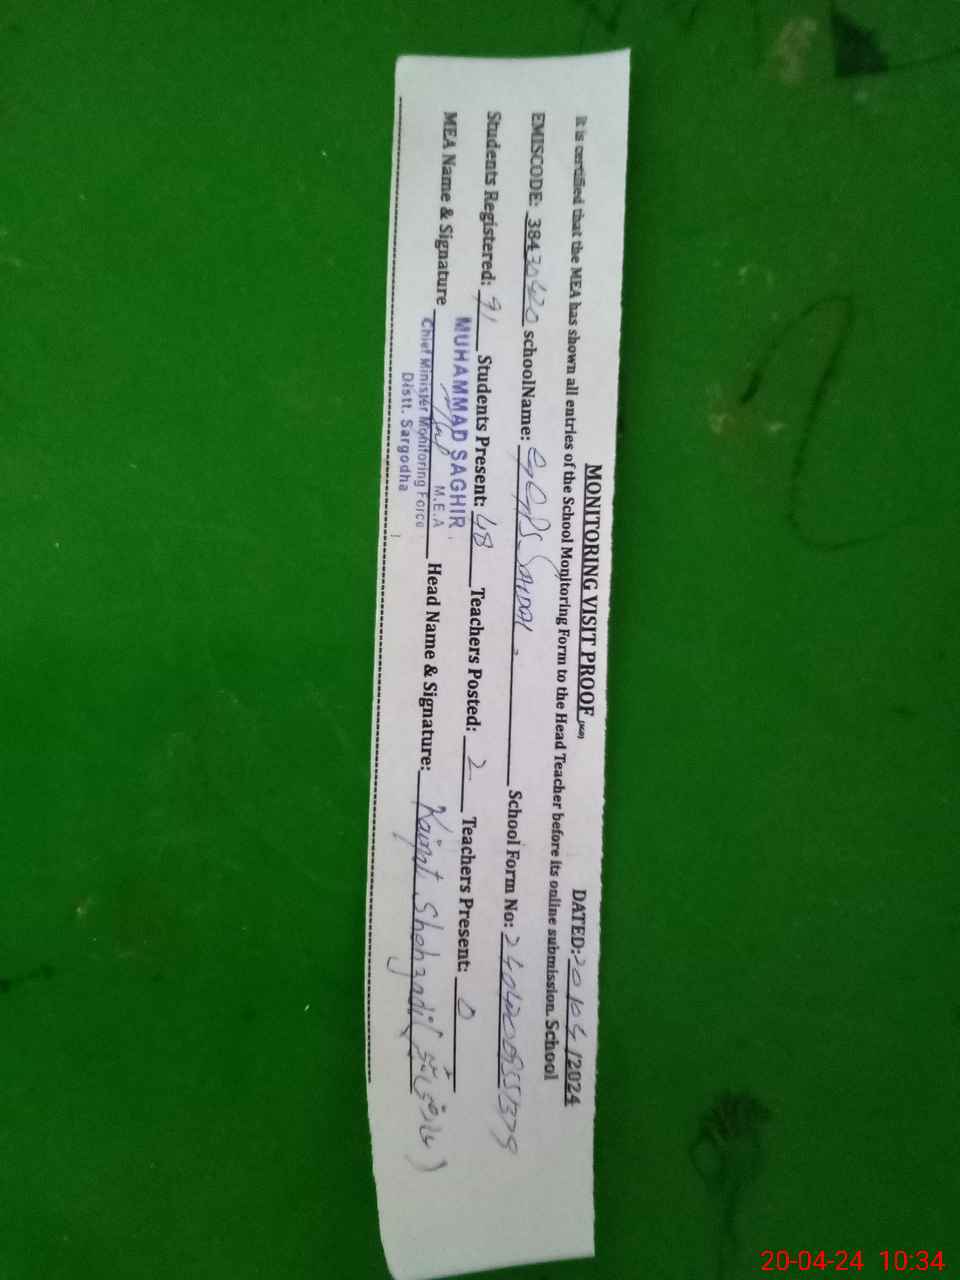 MONITORING VISIT PROOF DATED: 20/04/2024
It is certified that the MEA has shown all entries of the School Monitoring Form to the Head Teacher before its online submission. School
EMISCODE: 38430420 schoolName: GGPS SAIDAL School Form No:
Students Registered: 91 Students Present: 48 Teachers Posted: 2 Teachers Present: 0
MEA Name & Signature Head Name & Signature: Kainat Shehzadi
MUHAMMAD SAGHIR
M.E.A
Chief Minister Monitoring Force
Distt. Sargodha
20-04-24 10:34